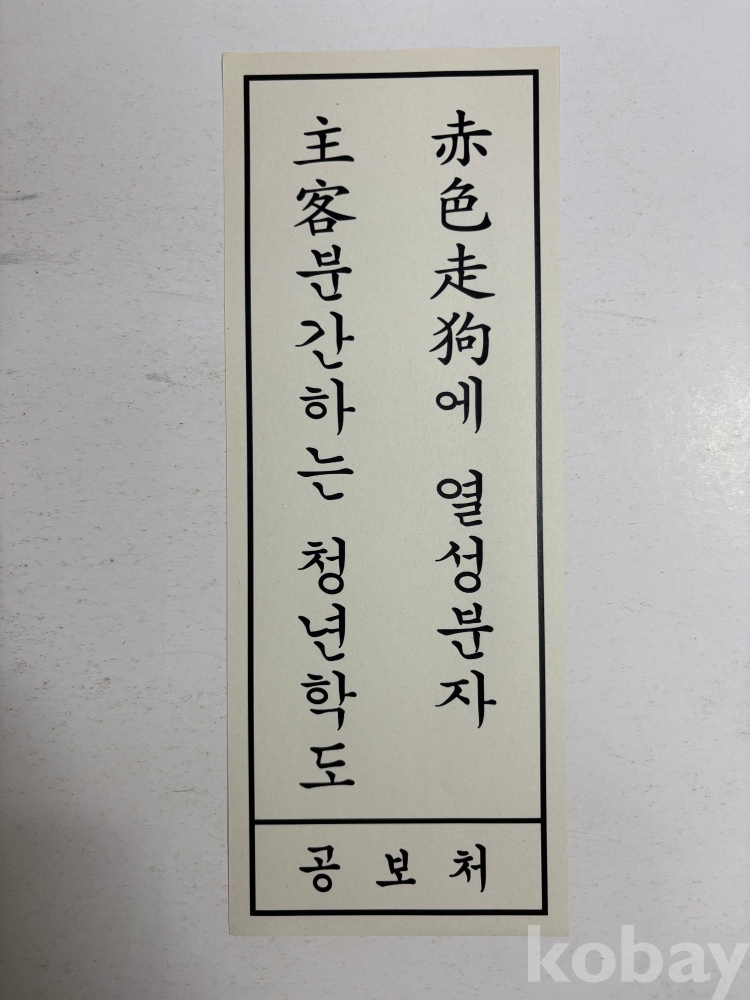 赤色走狗에 열성분자
主客분간하는 청년학도
공보처
kobay